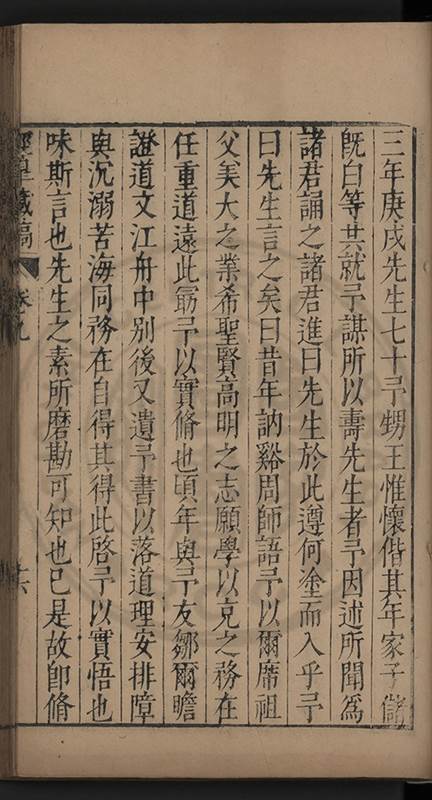 三年庚戌先生七十予甥王惟懷偕其年家子儲
旣白等共就予謀所以壽先生者予因述所聞爲
諸君誦之諸君進曰先生於此遵何塗而入乎予
曰先生言之矣曰昔年訥谿周師語予以爾席祖
父美大之業希聖賢高明之志願學以克之務在
任重道遠此勗予以實脩也頃年與予友鄒爾瞻
證道文江舟中別後又遺予書以落道理安排障
與沉溺苦海同務在自得其得此啓予以實悟也
味斯言也先生之素所磨勘可知也已是故卽脩
卷九